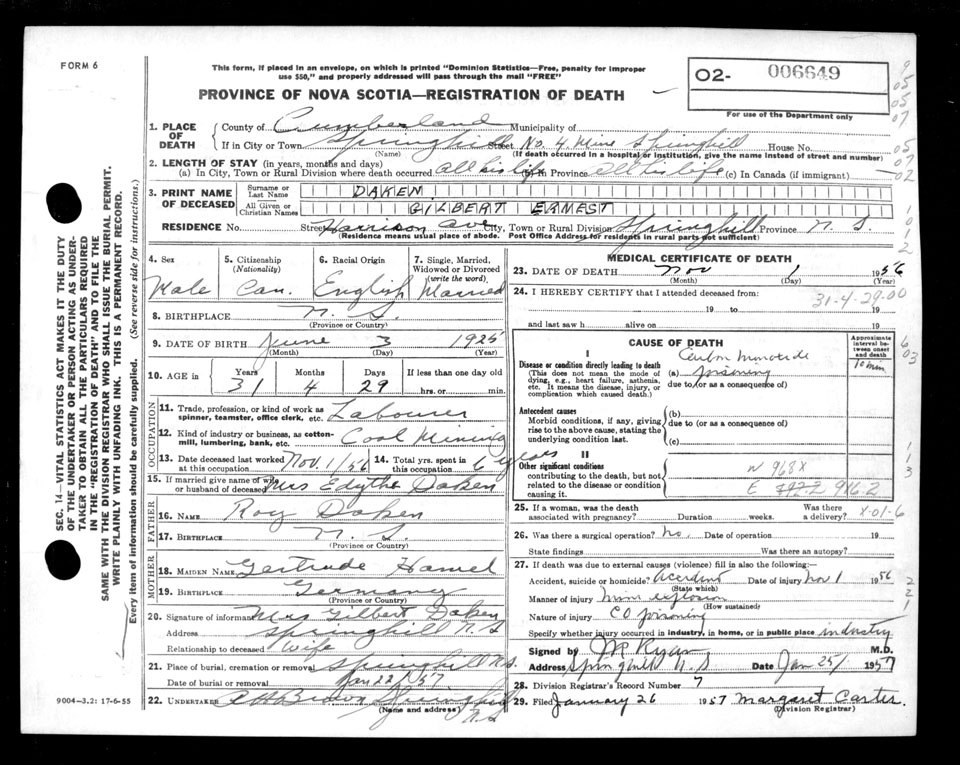 FORM 6
This form, if placed in an envelope, on which is printed "Dominion Statistics—Free, penalty for improper
use $50," and properly addressed will pass through the mail "FREE"
PROVINCE OF NOVA SCOTIA—REGISTRATION OF DEATH
02- 006649
For use of the Department only
9
05
05
07
05
07
02
1. PLACE OF DEATH
County of Cumberland Municipality of
If in City or Town Springhill Street No. 4 Mine Springhill House No.
(Name) (If death occurred in a hospital or institution, give the name instead of street and number)
2. LENGTH OF STAY (in years, months and days)
(a) In City, Town or Rural Division where death occurred all his life (b) Province all his life (c) In Canada (if immigrant)
3. PRINT NAME OF DECEASED
Surname or Last Name DAKEN
All Given or Christian Names GILBERT ERNEST
RESIDENCE No. Street Harrison ave City, Town or Rural Division Springhill Province N. S.
(Residence means usual place of abode. Post Office Address for residents in rural parts not sufficient)
1
0
1
2
4. Sex
Male
5. Citizenship
(Nationality)
Can.
6. Racial Origin
English
7. Single, Married, Widowed or Divorced
(write the word)
Married
8. BIRTHPLACE N. S.
(Province or Country)
9. DATE OF BIRTH June 3 1925
(Month) (Day) (Year)
10. AGE in
Years Months Days If less than one day
31 4 29 hrs. or min.
OCCUPATION
11. Trade, profession, or kind of work as
spinner, teamster, office clerk, etc. Labourer
12. Kind of industry or business, as cotton-
mill, lumbering, bank, etc. Coal Mining
13. Date deceased last worked
at this occupation Nov. 1/56
14. Total yrs. spent in
this occupation 6 years
15. If married give name of wife
or husband of deceased Mrs Edythe Daken
FATHER
16. NAME Roy Daken
17. BIRTHPLACE N. S.
(Province or Country)
MOTHER
18. MAIDEN NAME Gertrude Hamel
19. BIRTHPLACE Germany
(Province or Country)
20. Signature of informant Mrs Gilbert Daken
Address Springhill N. S
Relationship to deceased Wife
21. Place of burial, cremation or removal Springhill N.S.
Date of burial or removal Jan 22/57
22. UNDERTAKER Springhill
(Name and address) N. S
MEDICAL CERTIFICATE OF DEATH
23. DATE OF DEATH Nov 1 1956
(Month) (Day) (Year)
24. I HEREBY CERTIFY that I attended deceased from:
31-4-29-00
19 to 19
and last saw h alive on 19
CAUSE OF DEATH
Approximate interval between onset and death
I
Disease or condition directly leading to death
(This does not mean the mode of dying, e.g., heart failure, asthenia, etc. It means the disease, injury, or complication which caused death.)
Carbon Monoxide
(a) poisoning
due to (or as a consequence of)
10 min
Antecedent causes
Morbid conditions, if any, giving rise to the above cause, stating the underlying condition last.
(b)
due to (or as a consequence of)
(c)
II
Other significant conditions
contributing to the death, but not related to the disease or condition causing it.
N 968X
E 916-2
6
03
1
1
3
25. If a woman, was the death
associated with pregnancy? Duration weeks. Was there
a delivery? X-01-6
26. Was there a surgical operation? No. Date of operation 19
State findings Was there an autopsy?
27. If death was due to external causes (violence) fill in also the following:—
Accident, suicide or homicide? Accident Date of injury Nov 1 1956
(State which)
Manner of injury mine explosion
(How sustained)
Nature of injury CO poisoning
Specify whether injury occurred in industry, in home, or in public place industry
Signed by Ryan M.D.
Address Springhill N. S Date Jan 25/ 1957
28. Division Registrar's Record Number 7
29. Filed January 26 1957 Margaret Carter
(Division Registrar)
2
2
1
SEC. 14—VITAL STATISTICS ACT MAKES IT THE DUTY
OF THE UNDERTAKER OR PERSON ACTING AS UNDER-
TAKER TO OBTAIN ALL THE PARTICULARS REQUIRED
IN THE "REGISTRATION OF DEATH" AND TO FILE THE
SAME WITH THE DIVISION REGISTRAR WHO SHALL ISSUE THE BURIAL PERMIT.
WRITE PLAINLY WITH UNFADING INK. THIS IS A PERMANENT RECORD.
Every item of information should be carefully supplied. (See reverse side for instructions.)
9004-3.2: 17-6-55